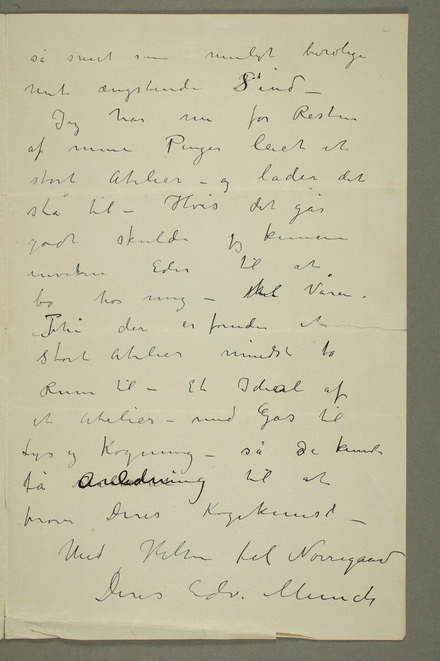 så snart som muligt berolige
mit ængstende Sind –
Jeg har nu for Resten
af mine Penge leiet et
stort Atelier – og lader det
stå til – Hvis det går
godt skulde jeg kunne
invitere Eder til at
bo hos mig – til Våren.
Thi der er foruden et
stort Atelier mindst to
Rum til – Et Ideal af
et Atelier – med Gas til
Lys og Kogning – så De kunde
få Anledning til at
prøve Deres Kogekunst –
Med Hilsen til Nørregaard
Deres Edv. Munch